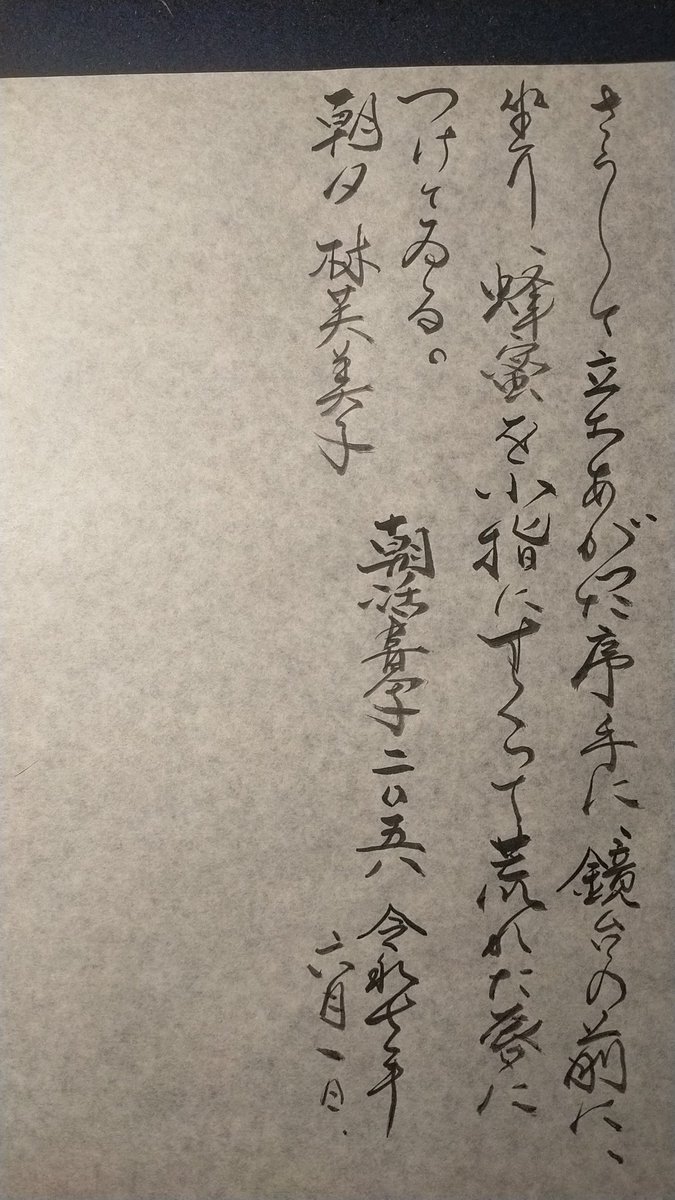 さうして立ちあがつた序手に、鏡台の前に、
坐り、蜂蜜を小指にすくつて荒れた唇に
つけてゐる。
朝夕 林芙美子
朝活書写二〇五八 令和七年
六月一日.